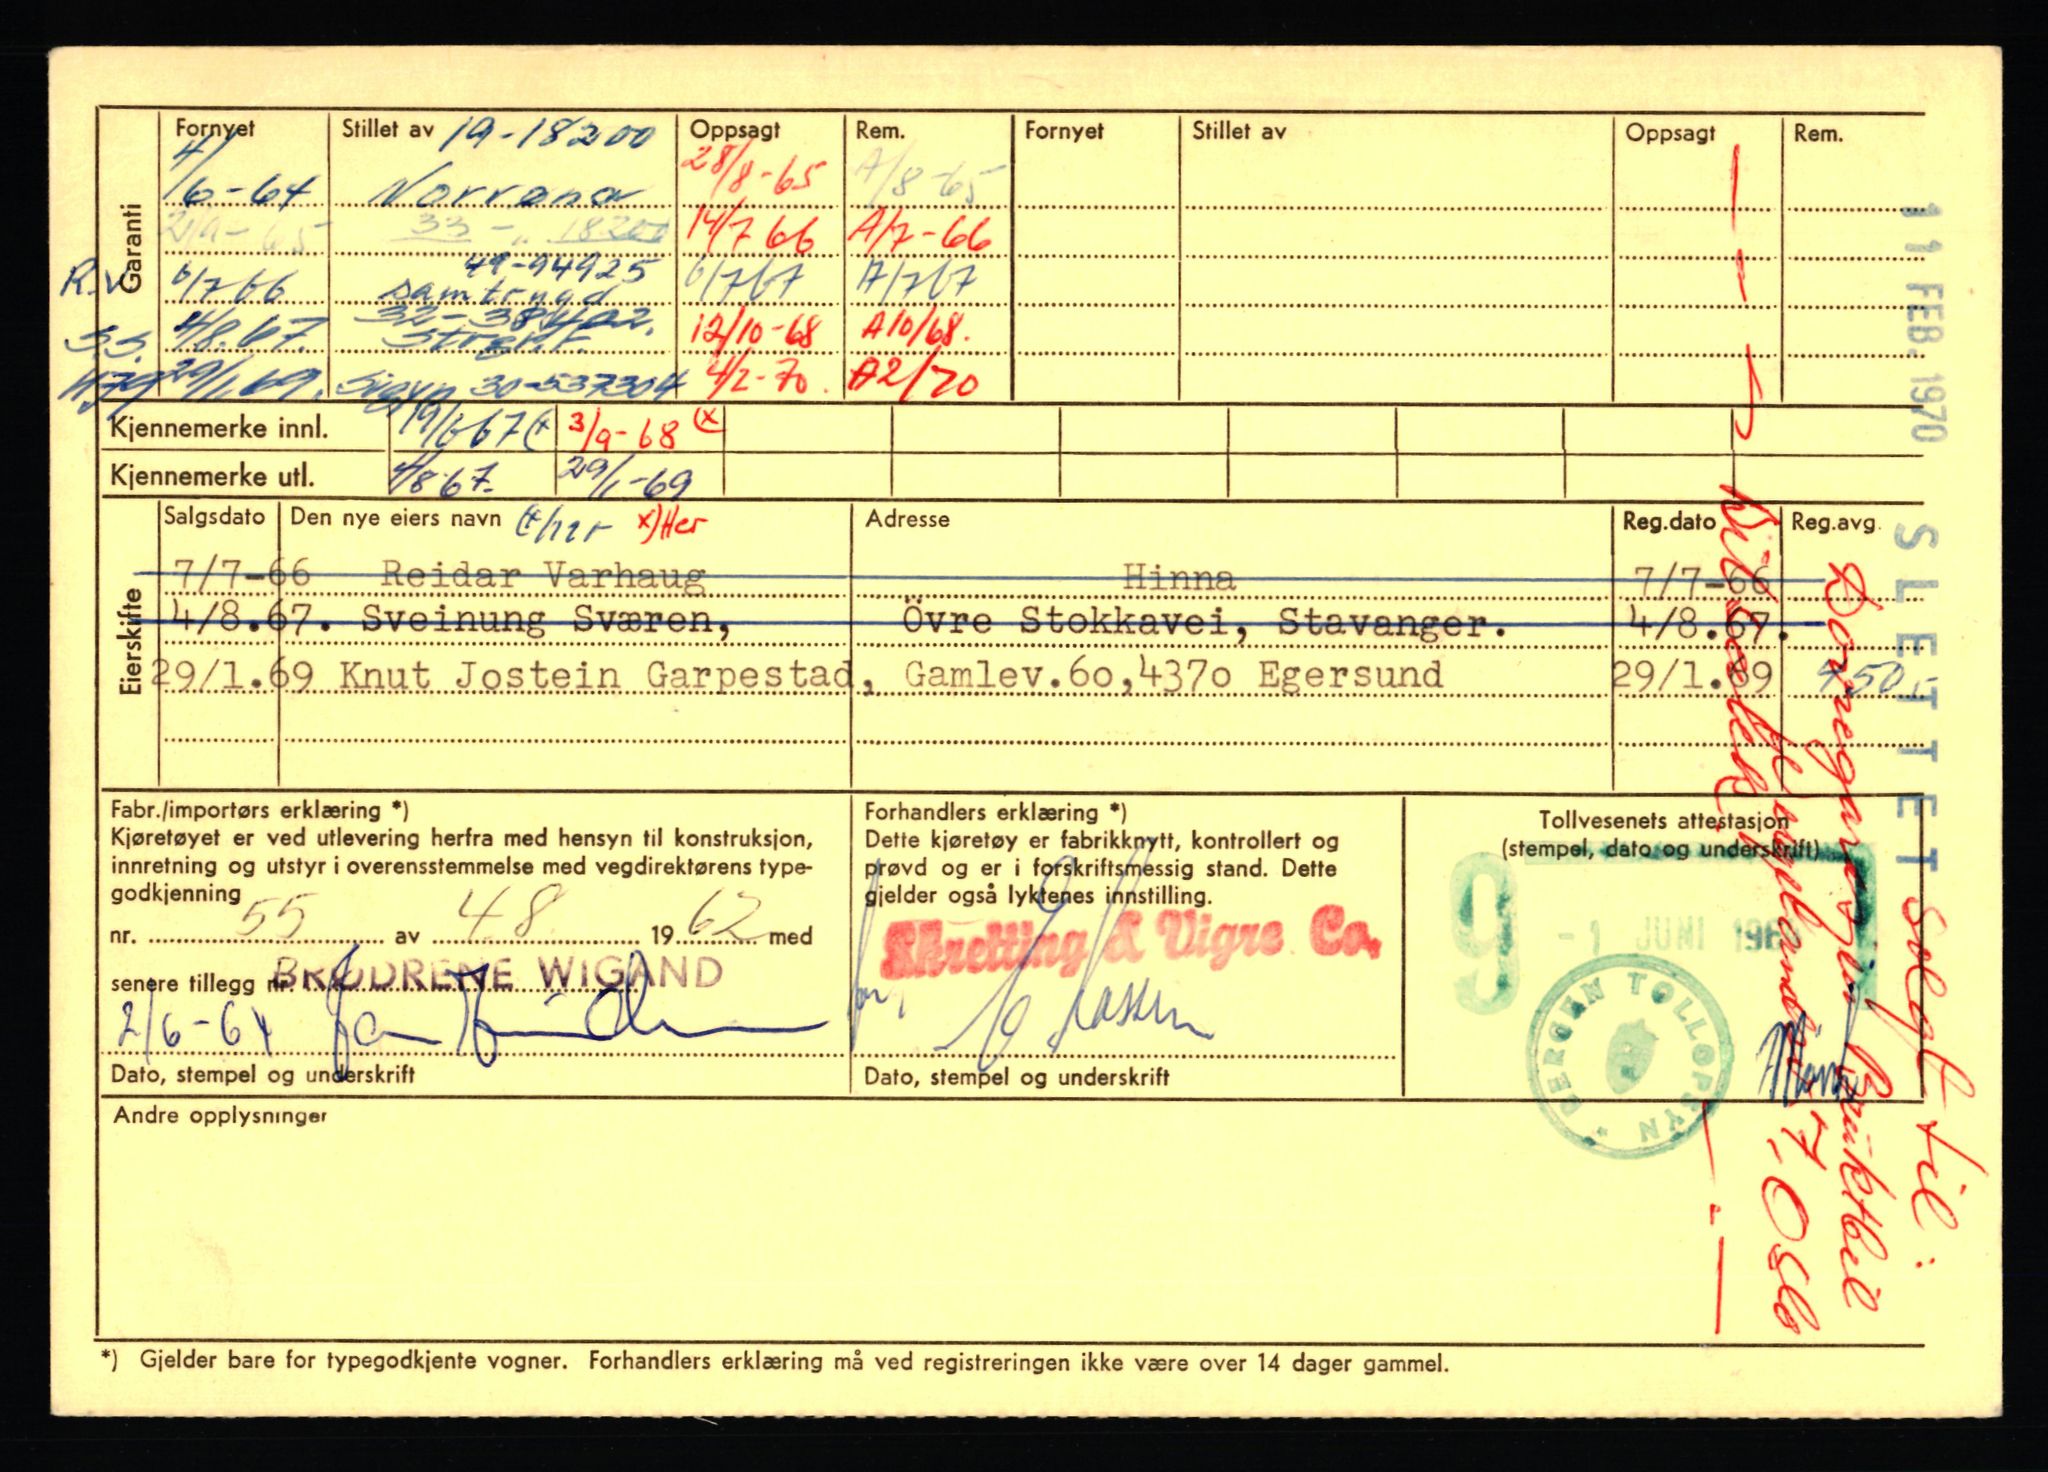 Garanti
Fornyet Stillet av 19-18200 Oppsagt Rem. Fornyet Stillet av Oppsagt Rem.
4/6-64 Norrøna 28/8-65 A/8-65
2/9-65 33-„ 18200 14/7 66 A/7-66
R.V. 6/7 66 49-94925 samtrygd 6/7 67 A/7 67
S.S. 4/8.67. 32-38402. Storbr. 12/10-68 A10/68.
29/1.69. Sigyn 30-537304 4/2-70. A2/70
Kjennemerke innl. 19/6 67 (x 3/9-68 (x
Kjennemerke utl. 4/8 67. 29/1-69
Eierskifte
Salgsdato Den nye eiers navn (x her x) Her Adresse Reg.dato Reg.avg.
7/7-66 Reidar Varhaug Hinna 7/7-66
4/8.67. Sveinung Sværen, Övre Stokkavei, Stavanger. 4/8.67.
29/1.69 Knut Jostein Garpestad, Gamlev.60,4370 Egersund 29/1.69 450,-
Fabr./importørs erklæring *)
Kjøretøyet er ved utlevering herfra med hensyn til konstruksjon,
innretning og utstyr i overensstemmelse med vegdirektørens type-
godkjenning
nr. 55 av 4.8. 1962 med
senere tillegg nr. BRØDRENE WIGAND
2/6-64
Dato, stempel og underskrift
Forhandlers erklæring *)
Dette kjøretøy er fabrikknytt, kontrollert og
prøvd og er i forskriftsmessig stand. Dette
gjelder også lyktenes innstilling.
for Skretting & Vigre Co.
Dato, stempel og underskrift
Tollvesenets attestasjon
(stempel, dato og underskrift)
9 - 1 JUNI 196
TOLLOPSYN
Andre opplysninger
*) Gjelder bare for typegodkjente vogner. Forhandlers erklæring må ved registreringen ikke være over 14 dager gammel.
11 FEB. 1970
SLETTET
Solgt til:
Bruktbil
7, Oslo